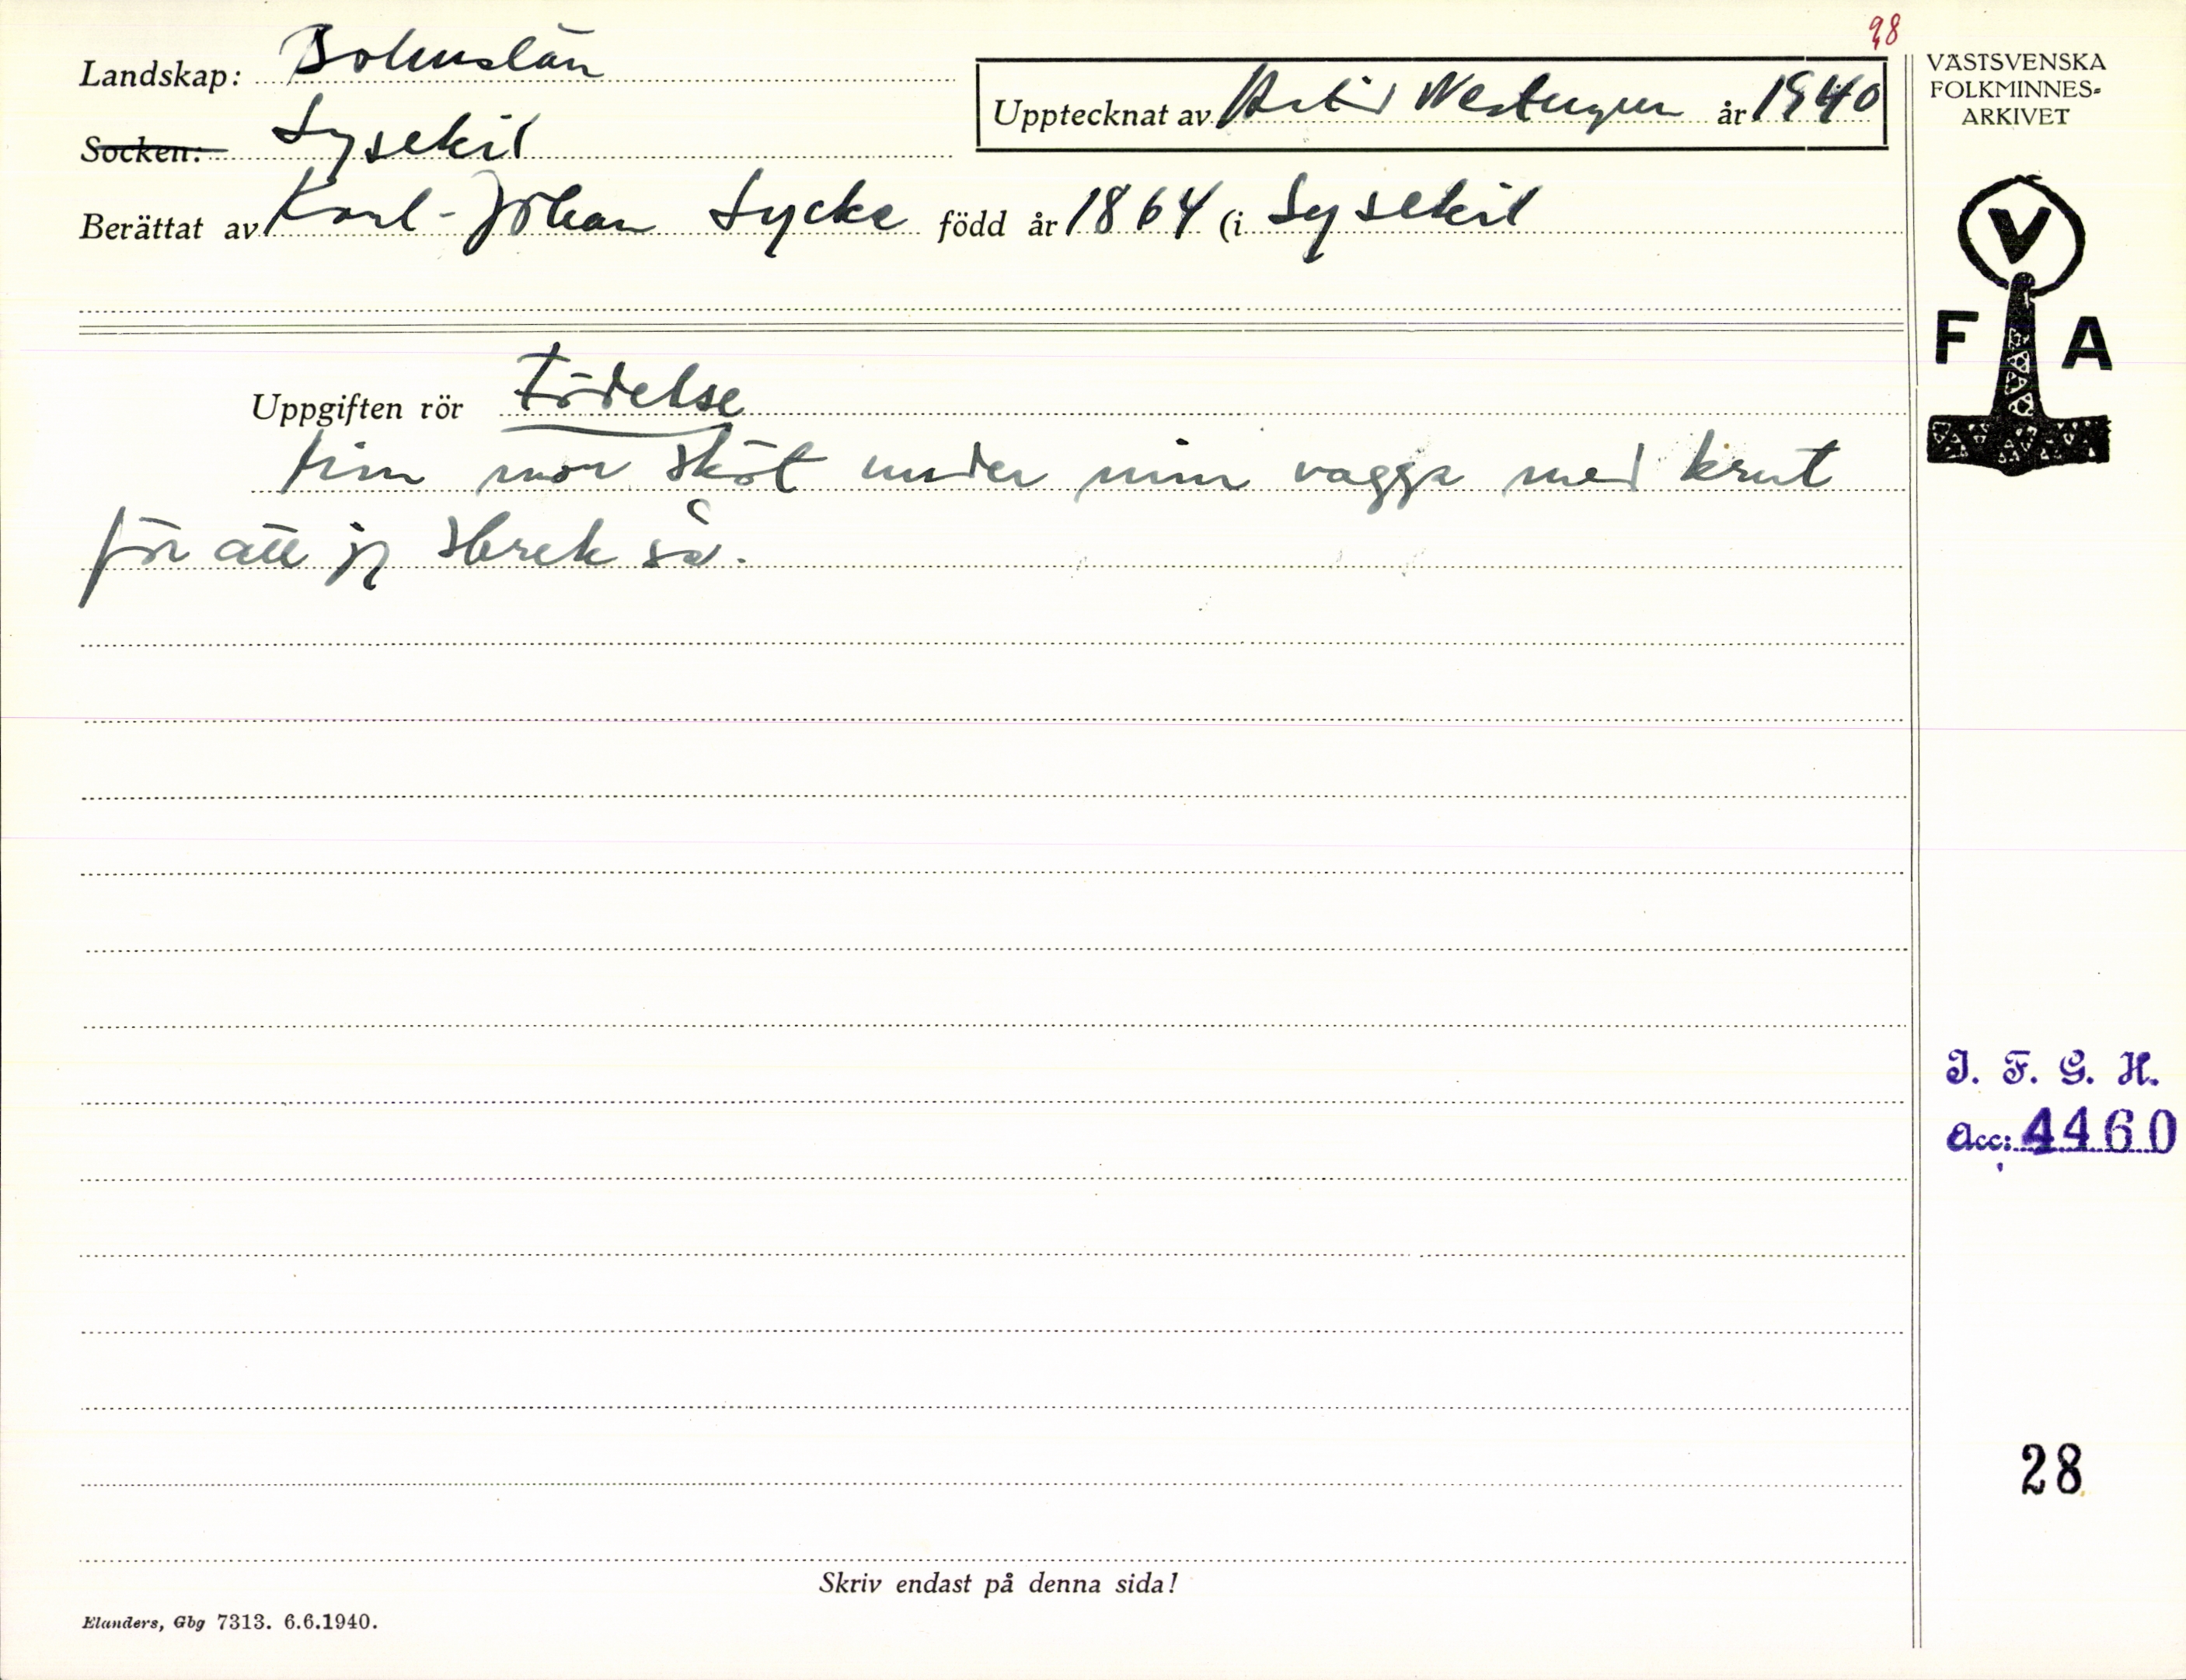 98
Landskap: Bohuslän
Socken: Lysekil
Upptecknat av Westergren år 1940
Berättat av Karl-Johan Lycke född år 1864 (i Lysekil
VÄSTSVENSKA
FOLKMINNES-
ARKIVET
V
F A
Uppgiften rör Födelse
Min mor sköt under min vagga med krut
för att jag skrek så.
I. F. G. H.
Acc: 4460
28
Skriv endast på denna sida!
Elanders, Gbg 7313. 6.6.1940.